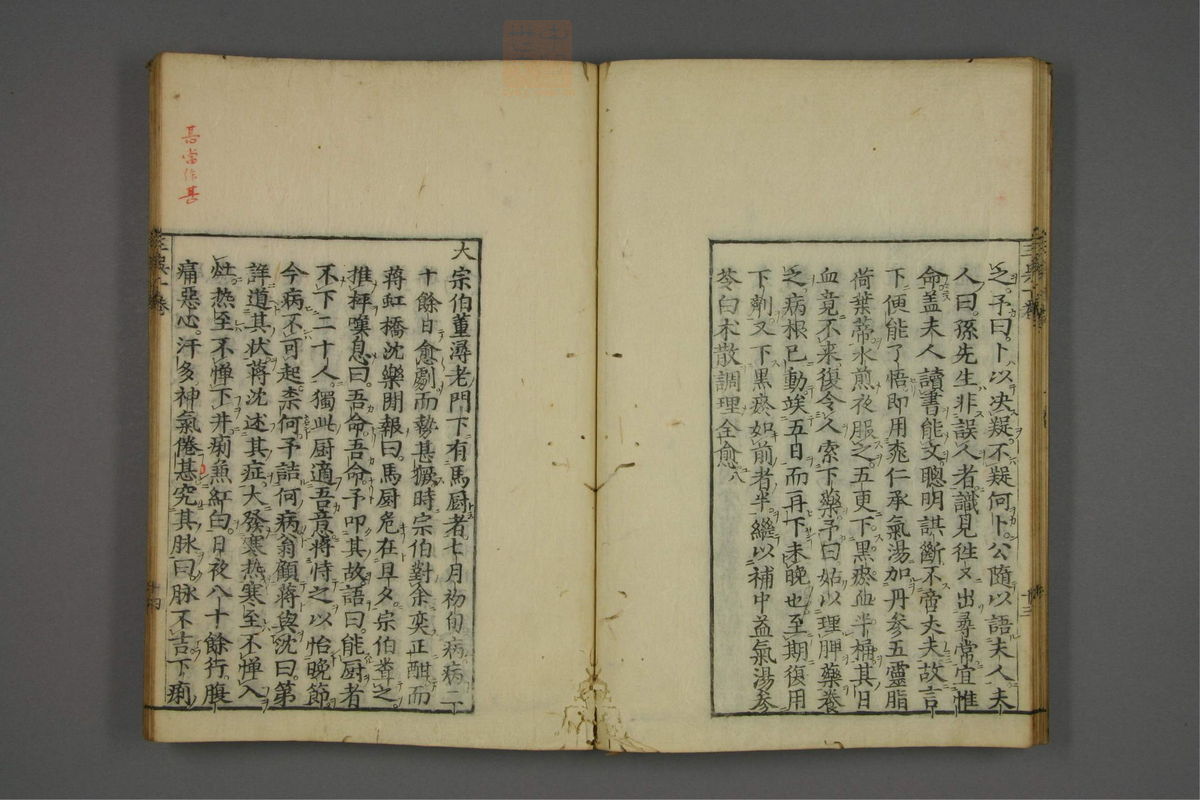 乏予曰卜以决疑不疑何卜公隨以語夫人夫
人曰孫先生非誤人者識見徃又出尋常宜惟
命盖夫人讀書能文聰明諆斷不啻丈夫故言
下便能了悟即用桃仁承氣湯加丹參五靈脂
荷葉蒂水煎夜服之五更下黑瘀血半桶其日
血竟不来復令人索下藥予曰姑以理脾藥養
之病根已動竢五日而再下未晚也至期復用
下劑又下黑瘀如前者半繼以補中益氣湯參
苓白朮散調理全愈
十三
大宗伯董潯老門下有馬厨者七月初旬病病二
十餘日愈劇而勢甚獗時宗伯對余奕正酣而
蔣虹橋沈樂閒報曰馬厨危在旦夕宗伯聳之
推枰嘆息曰吾命吾命予叩其故語曰能厨者
不下二十人獨此厨適吾意將恃之以怡晚節
今病不可起柰何予詰何病翁顧蔣與沈曰第
詳道其状蔣沈述其症大發寒热寒至不憚入
灶热至不憚下井痢兼紅白日夜八十餘行腹
痛惡心汗多神氣倦甚究其脉曰脉不吉下痢
十四
甚當作甚